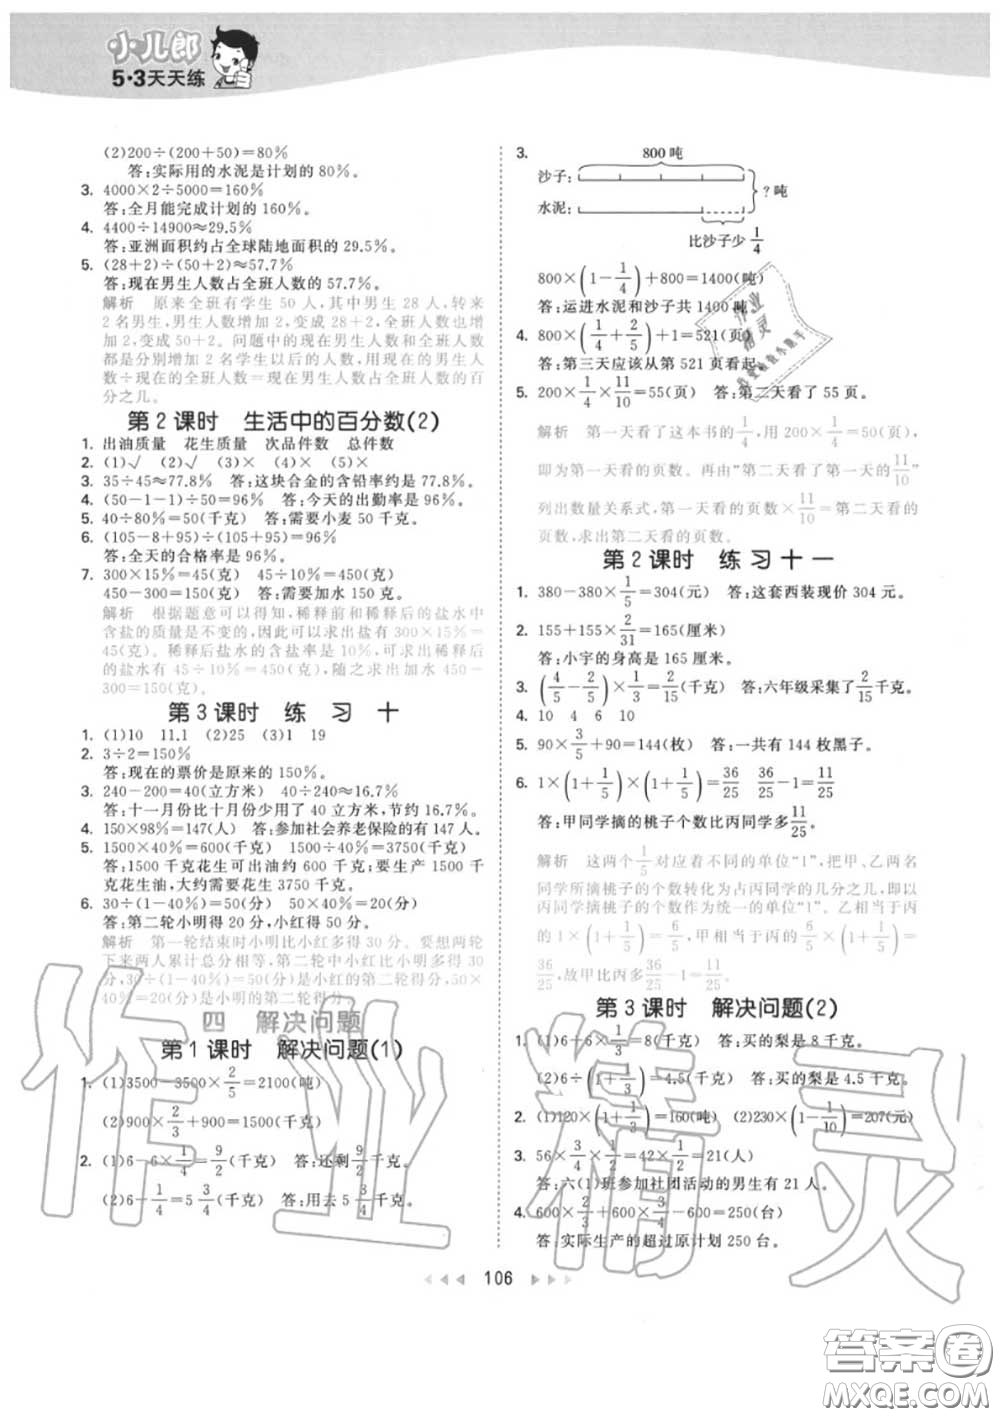 小儿郎
5·3天天练
(2)200÷(200+50)=80%
答:实际用的水泥是计划的 80%。
3. 4000×2÷5000=160%
答:全月能完成计划的 160%。
4. 4400÷14900≈29.5%
答:亚洲面积约占全球陆地面积的 29.5%。
5. (28+2)÷(50+2)≈57.7%
答:现在男生人数占全班人数的 57.7%。
解析 原来全班有学生 50 人,其中男生 28 人,转来
2 名男生,男生人数增加 2,变成 28+2,全班人数也增
加 2,变成 50+2。问题中的现在男生人数和全班人数
都是分别增加 2 名学生以后的人数,用现在的男生人
数÷现在的全班人数=现在男生人数占全班人数的百
分之几。
第 2 课时 生活中的百分数(2)
1. 出油质量 花生质量 次品件数 总件数
2. (1)√ (2)√ (3)× (4)× (5)×
3. 35÷45≈77.8% 答:这块合金的含铅率约是 77.8%。
4. (50-1-1)÷50=96% 答:今天的出勤率是 96%。
5. 40÷80%=50(千克) 答:需要小麦 50 千克。
6. (105-8+95)÷(105+95)=96%
答:全天的合格率是 96%。
7. 300×15%=45(克) 45÷10%=450(克)
450-300=150(克) 答:需要加水 150 克。
解析 根据题意可以得知,稀释前和稀释后的盐水中
含盐的质量是不变的,因此可以求出盐有 300×15%=
45(克)。稀释后盐水的含盐率是 10%,可求出稀释后
的盐水有 45÷10%=450(克),随之求出加水 450-
300=150(克)。
第 3 课时 练 习 十
1. (1)10 11.1 (2)25 (3)1 19
2. 3÷2=150%
答:现在的票价是原来的 150%。
3. 240-200=40(立方米) 40÷240≈16.7%
答:十一月份比十月份少用了 40 立方米,节约 16.7%。
4. 150×98%=147(人) 答:参加社会养老保险的有 147 人。
5. 1500×40%=600(千克) 1500÷40%=3750(千克)
答:1500 千克花生可出油约 600 千克;要生产 1500 千
克花生油,大约需要花生 3750 千克。
6. 30÷(1-40%)=50(分) 50×40%=20(分)
答:第二轮小明得 20 分,小红得 50 分。
解析 第一轮结束时小明比小红多得 30 分。要想两轮
下来两人累计总分相等,第二轮中小明比小红少得 30
分。30÷(1-40%)=50(分)是小红的第二轮得分,50×
40%=20(分)是小明的第二轮得分。
四 解决问题
第 1 课时 解决问题(1)
1. (1)3500-3500×2/5=2100(吨)
(2)900×2/3+900=1500(千克)
2. (1)6-6×1/4=9/2(千克) 答:还剩9/2千克。
(2)6-1/4=5 3/4(千克) 答:用去 5 3/4千克。
3.
800 吨
沙子:
水泥:
? 吨
比沙子少 1/4
800×(1-1/4)+800=1400(吨)
答:运进水泥和沙子共 1400 吨。
4. 800×(1/4+2/5)+1=521(页)
答:第三天应该从第 521 页看起。
5. 200×1/4×11/10=55(页) 答:第二天看了 55 页。
解析 第一天看了这本书的1/4,用 200×1/4=50(页),
即为第一天看的页数。再由“第二天看了第一天的11/10”
列出数量关系式,第一天看的页数×11/10=第二天看的
页数,求出第二天看的页数。
第 2 课时 练 习 十 一
1. 380-380×1/5=304(元) 答:这套西装现价 304 元。
2. 155+155×2/31=165(厘米)
答:小宇的身高是 165 厘米。
3. (4/5-2/5)×1/3=2/15(千克) 答:六年级采集了2/15千克。
4. 10 4 6 10
5. 90×3/5+90=144(枚) 答:一共有 144 枚黑子。
6. 1×(1+1/5)×(1+1/5)=36/25 36/25-1=11/25
答:甲同学摘的桃子个数比丙同学多11/25。
解析 这两个1/5对应着不同的单位“1”,把甲、乙两名
同学所摘桃子的个数转化为占丙同学的几分之几,即以
丙同学摘桃子的个数作为统一的单位“1”。乙相当于丙
的 1×(1+1/5)=6/5,甲相当于丙的6/5×(1+1/5)=
36/25,故甲比丙多36/25-1=11/25。
第 3 课时 解决问题(2)
1. (1)6+6×1/3=8(千克) 答:买的梨是 8 千克。
(2)6÷(1+1/3)=4.5(千克) 答:买的梨是 4.5 千克。
2. (1)120×(1+1/3)=160(吨) (2)230×(1-1/10)=207(元)
3. 56×3/4×1/2=42×1/2=21(人)
答:六(1)班参加社团活动的男生有 21 人。
4. 600×2/3+600×3/4-600=250(台)
答:实际生产的超过原计划 250 台。
106
作业精灵
作业
精灵
答案圈
MXQE.COM